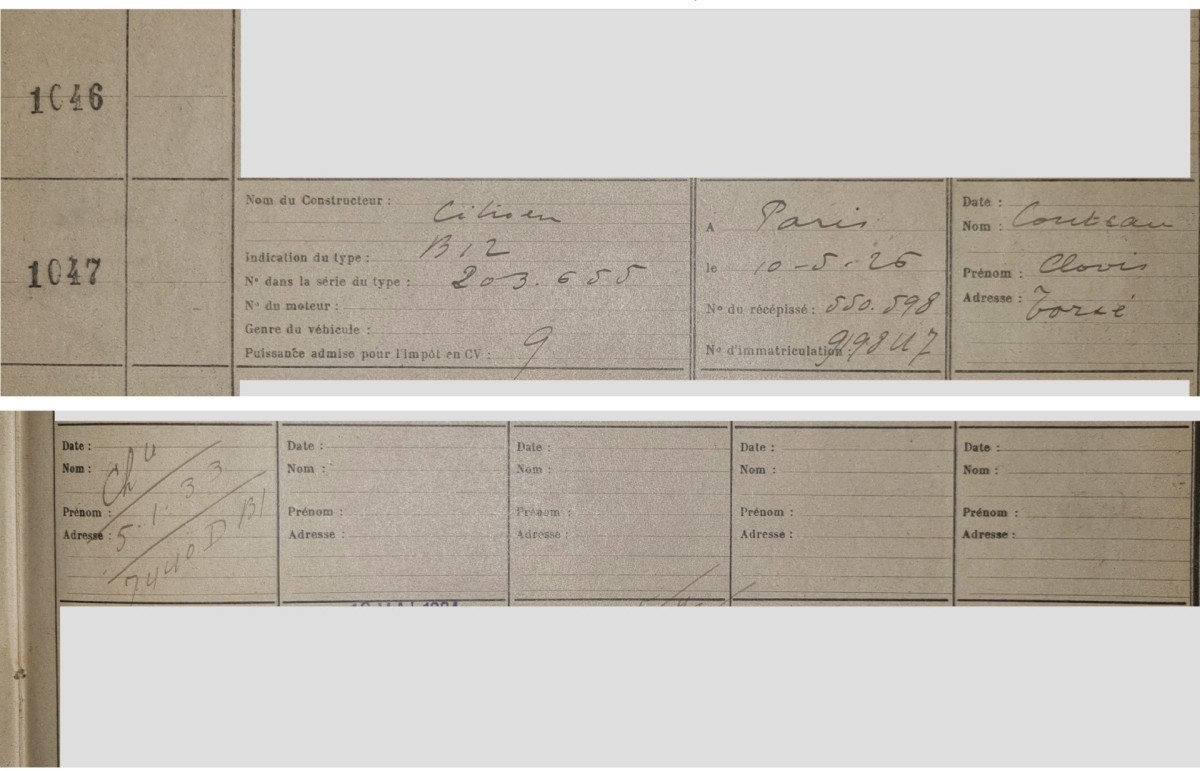 1046
1047
Nom du Constructeur : Citroen
Indication du type : B12
N° dans la série du type : 203.655
N° du moteur :
Genre du véhicule :
Puissance admise pour l'impôt en CV : 9
A Paris
le 10-5-26
N° du récépissé : 550.598
N° d'immatriculation 9198U7
Date :
Nom : Couteau
Prénom : Clovis
Adresse : Torcé
Date :
Nom : Ch u
Prénom :
Adresse : 5.1.33
7440.D B1
Date :
Nom :
Prénom :
Adresse :
Date :
Nom :
Prénom :
Adresse :
Date :
Nom :
Prénom :
Adresse :
Date :
Nom :
Prénom :
Adresse :